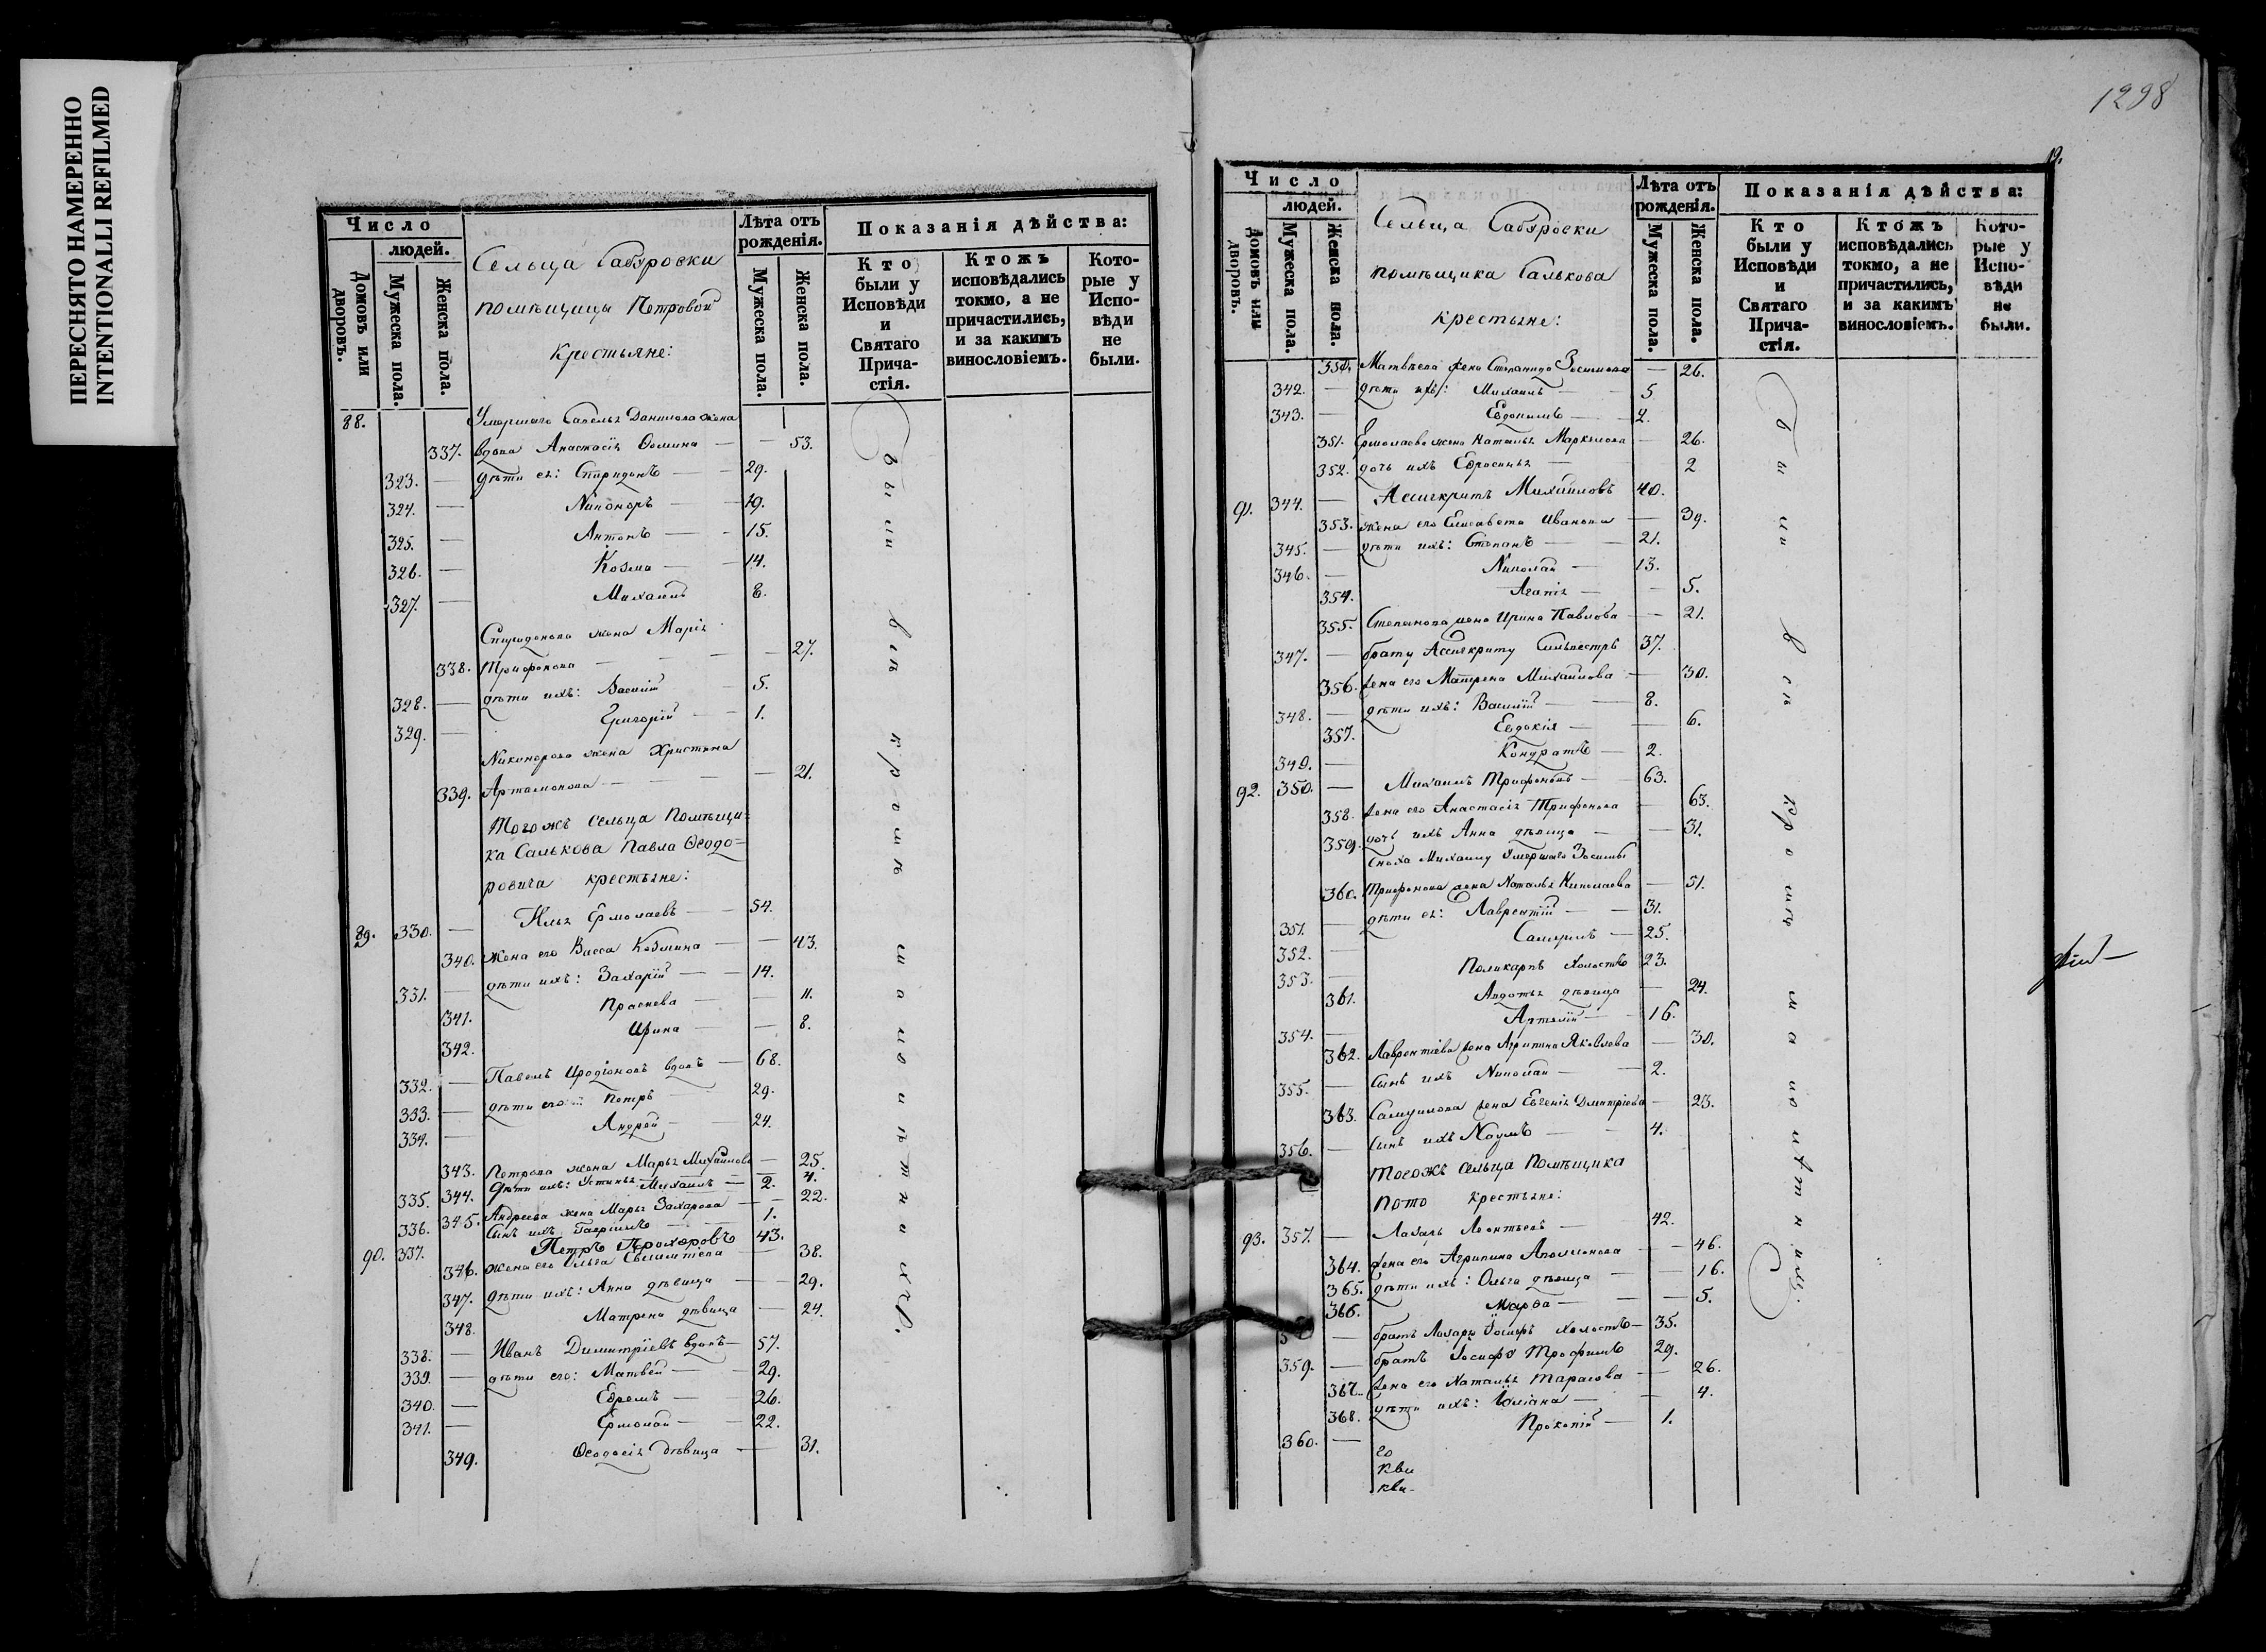 ПЕРЕСНЯТО НАМЕРЕННО
INTENTIONALLI REFILMED
Число
людей.
Домовъ или дворовъ.
Мужеска пола.
Женска пола.
Сельца Сабуровки
помѣщицы Петровой
крестьяне:
Лѣта отъ рожденія.
Мужеска пола.
Женска пола.
Показанія дѣйства:
Кто были у Исповѣди и Святаго Прича-стія.
Ктожъ исповѣдались токмо, а не причастились, и за какимъ винословіемъ.
Кото-рые у Испо-вѣди не были.
88. Умершаго Савелья Данилова жена
337. вдова Анастасія Ѳомина — — 53.
323. — дѣти ея: Спиридонъ — 29.
324. — Никоноръ — 19.
325. — Антонъ — 15.
326. — Козма — 14.
327. — Михаилъ 8.
Спиридонова жена Марія
338. Трифонова — — 27.
328. — дѣти ихъ: Василій — 5.
329. — Григорій — 1.
Никонорова жена Христина
339. Артамонова — — 21.
Тогожъ сельца Помѣщи=
ка Салькова Павла Ѳеодо=
ровича крестьяне:
89. 330. — Илья Ермолаевъ — 54.
340. жена его Васса Козмина — — 43.
331. — дѣти ихъ: Захарій — 14.
341. Прасковья — — 11.
342. Ирина — — 8.
332. — Павелъ Иродіоновъ вдовъ — 68.
333. — дѣти его: Петръ 29.
334. — Андрей — 24.
343. Петрова жена Марья Михайлова — 25.
335. 344. Дѣти ихъ: Устинья Михаилъ — 2. 4.
345. Андреева жена Марья Захарова — — 22.
336. Сынъ ихъ Гавріилъ — 1.
90. 337. Петръ Прохоровъ 43.
346. жена его Ольга — 38.
347. дѣти ихъ: Анна дѣвица — — 29.
348. Матрена дѣвица — 24.
338. — Иванъ Димитріевъ вдовъ — 57.
339. — дѣти его: Матвей — 29.
340. — Ефремъ — 26.
341. — Ермолай — 22.
349. Ѳеодосія дѣвица — 31.
Были всѣ кромѣ малолѣтнихъ.
1298
19.
Число
людей.
Домовъ или дворовъ.
Мужеска пола.
Женска пола.
Сельца Сабуровки
помѣщика Салькова
крестьяне:
Лѣта отъ рожденія.
Мужеска пола.
Женска пола.
Показанія дѣйства:
Кто были у Исповѣди и Святаго Прича-стія.
Ктожъ исповѣдались токмо, а не причастились, и за какимъ винословіемъ.
Кото-рые у Испо-вѣди не были.
350. Матвѣева жена Степанида Зосимова — 26.
342. — дѣти ихъ: Михаилъ — 5
343. — Евдокимъ — 2.
351. Ермолаева жена Наталья Маркелова — 26.
352. дочь ихъ Ефросинья — 2
91. 344. — Ассигкритъ Михайловъ 40.
353. жена его Елисавета Иванова — 39.
345. — дѣти ихъ: Степанъ — 21.
346. — Николай — 13.
354. Агапія — — 5.
355. Степанова жена Ирина Павлова — 21.
347. — братъ Ассигкриту Сильвестръ 37.
356. жена его Матрена Михайлова — 30.
348. — дѣти ихъ: Василій — 8.
357. Евдокія — — 6.
349. — Кондратъ — 2.
92. 350. — Михаилъ Трифоновъ — 63.
358. жена его Анастасія Трифонова — 63.
359. дочь ихъ Анна дѣвица — — 31.
Сноха Михаилу Умершаго Зосимы
360. Трифонова жена Наталья Николаева — 51.
351. — дѣти ея: Лаврентій — 31.
352. — Самуилъ — 25.
353. — Поликарпъ холостъ 23.
361. Авдотья дѣвица — 24.
354. — Артемій — 16.
362. Лаврентіева жена Агрипина Яковлева — 30.
355. — Сынъ ихъ Николай — 2.
363. Самуилова жена Евгенія Дмитріева — 23.
356. — Сынъ ихъ Наумъ — 4.
Тогожъ сельца Помѣщика
Пото крестьяне:
93. 357. — Лазарь Леонтьевъ — 42.
364. жена его Агрипина — — 46.
365. дѣти ихъ: Ольга дѣвица — — 16.
366. Марѳа — — 5.
— братъ Лазарю Іосифъ холостъ — 35.
359. — братъ Іосифъ Трофимъ 29.
367. жена его Наталья Тарасова — 26.
368. дѣти ихъ: Юліана — — 4.
360. — Прокопій — 1.
го
кви
кви-
Были всѣ кромѣ малолѣтнихъ.